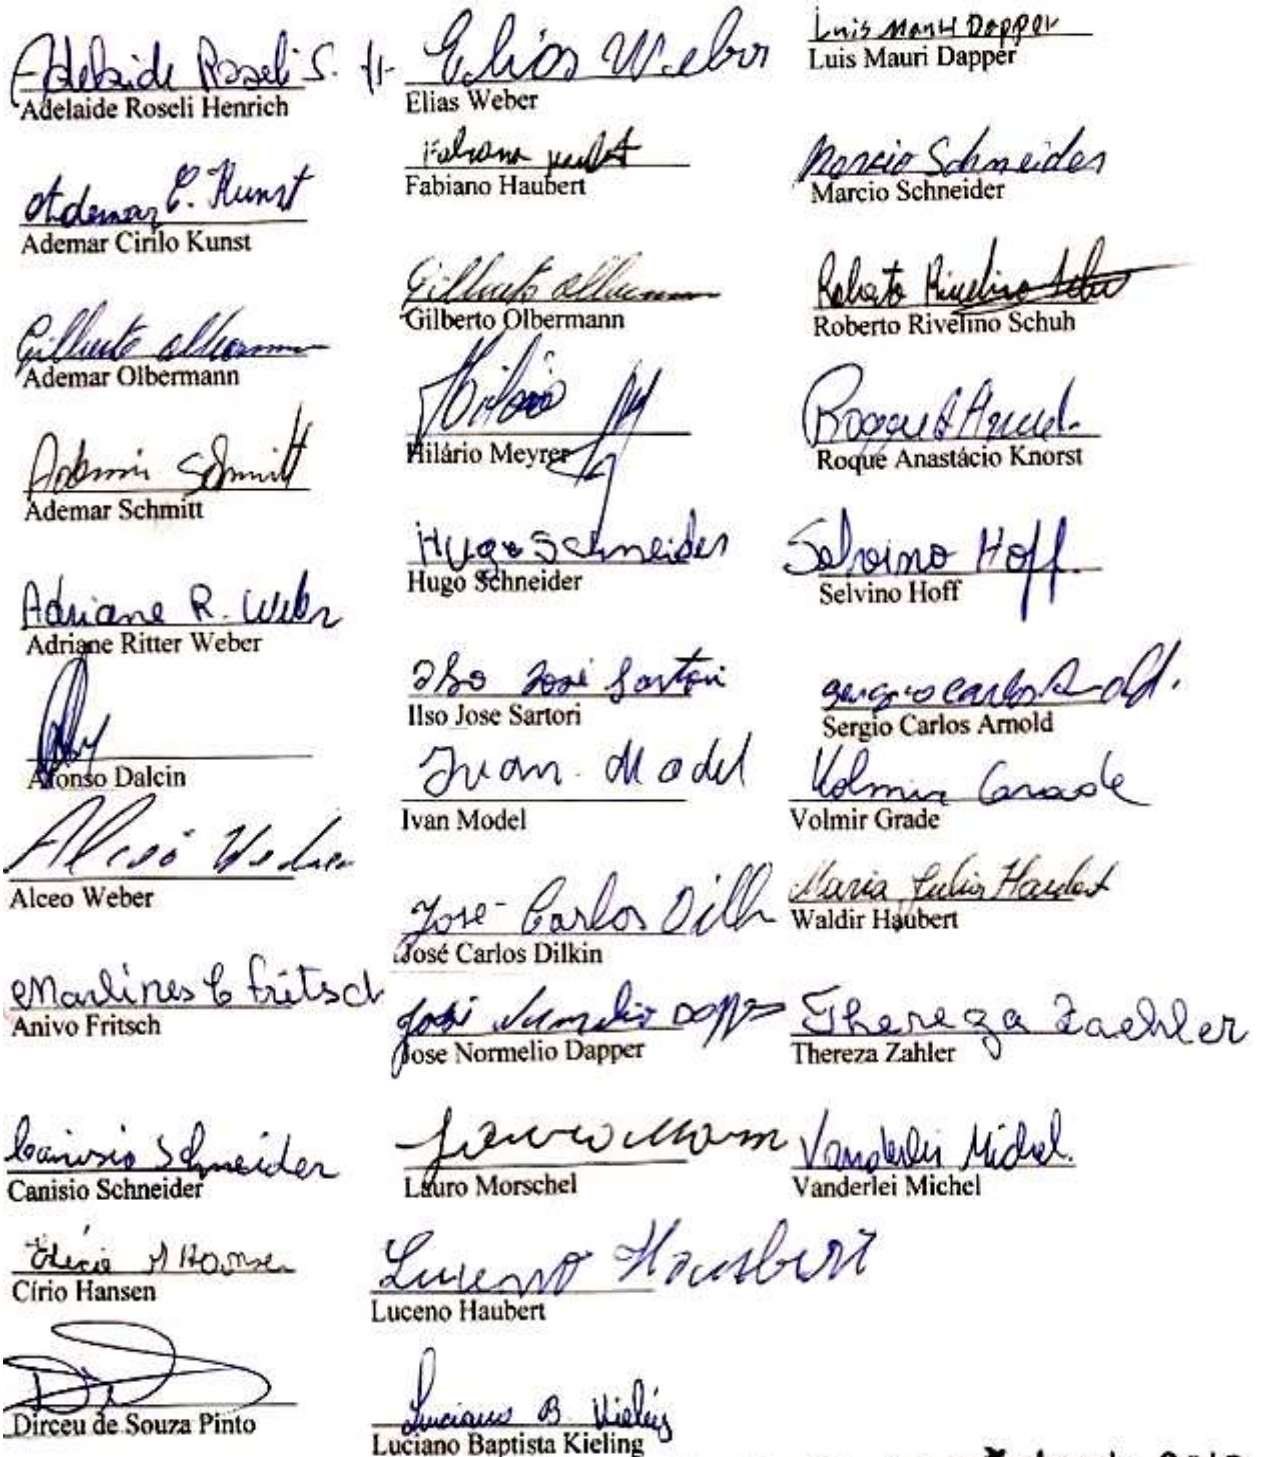 Adelaide Roseli S. H
Adelaide Roseli Henrich
Ademar C. Kunst
Ademar Cirilo Kunst
Gilberto Olbermann
Ademar Olbermann
Ademir Schmitt
Ademar Schmitt
Adriane R. Weber
Adriane Ritter Weber
Afonso Dalcin
Alceo Weber
Alceo Weber
Marlines C Fritsch
Anivo Fritsch
Canisio Schneider
Canisio Schneider
Hansen
Círio Hansen
Dirceu de Souza Pinto
Elias Weber
Elias Weber
Fabiano
Fabiano Haubert
Gilberto Olbermann
Gilberto Olbermann
Hilário
Hilário Meyrer
Hugo Schneider
Hugo Schneider
Ilso José Sartori
Ilso Jose Sartori
Ivan Model
Ivan Model
José Carlos Dilk
José Carlos Dilkin
José Normelio Dapper
Jose Normelio Dapper
Lauro
Lauro Morschel
Luceno Hausbert
Luceno Haubert
Luciano B. Kieling
Luciano Baptista Kieling
Luis Mauri Dapper
Luis Mauri Dapper
Marcio Schneider
Marcio Schneider
Roberto Rivelino Schuh
Roberto Rivelino Schuh
Roque A
Roque Anastácio Knorst
Selvino Hoff.
Selvino Hoff
Sergio Carlos Arnold.
Sergio Carlos Arnold
Volmir Grade
Volmir Grade
Maria Julia Haubert
Waldir Haubert
Thereza Zaehler
Thereza Zahler
Vanderlei Michel.
Vanderlei Michel